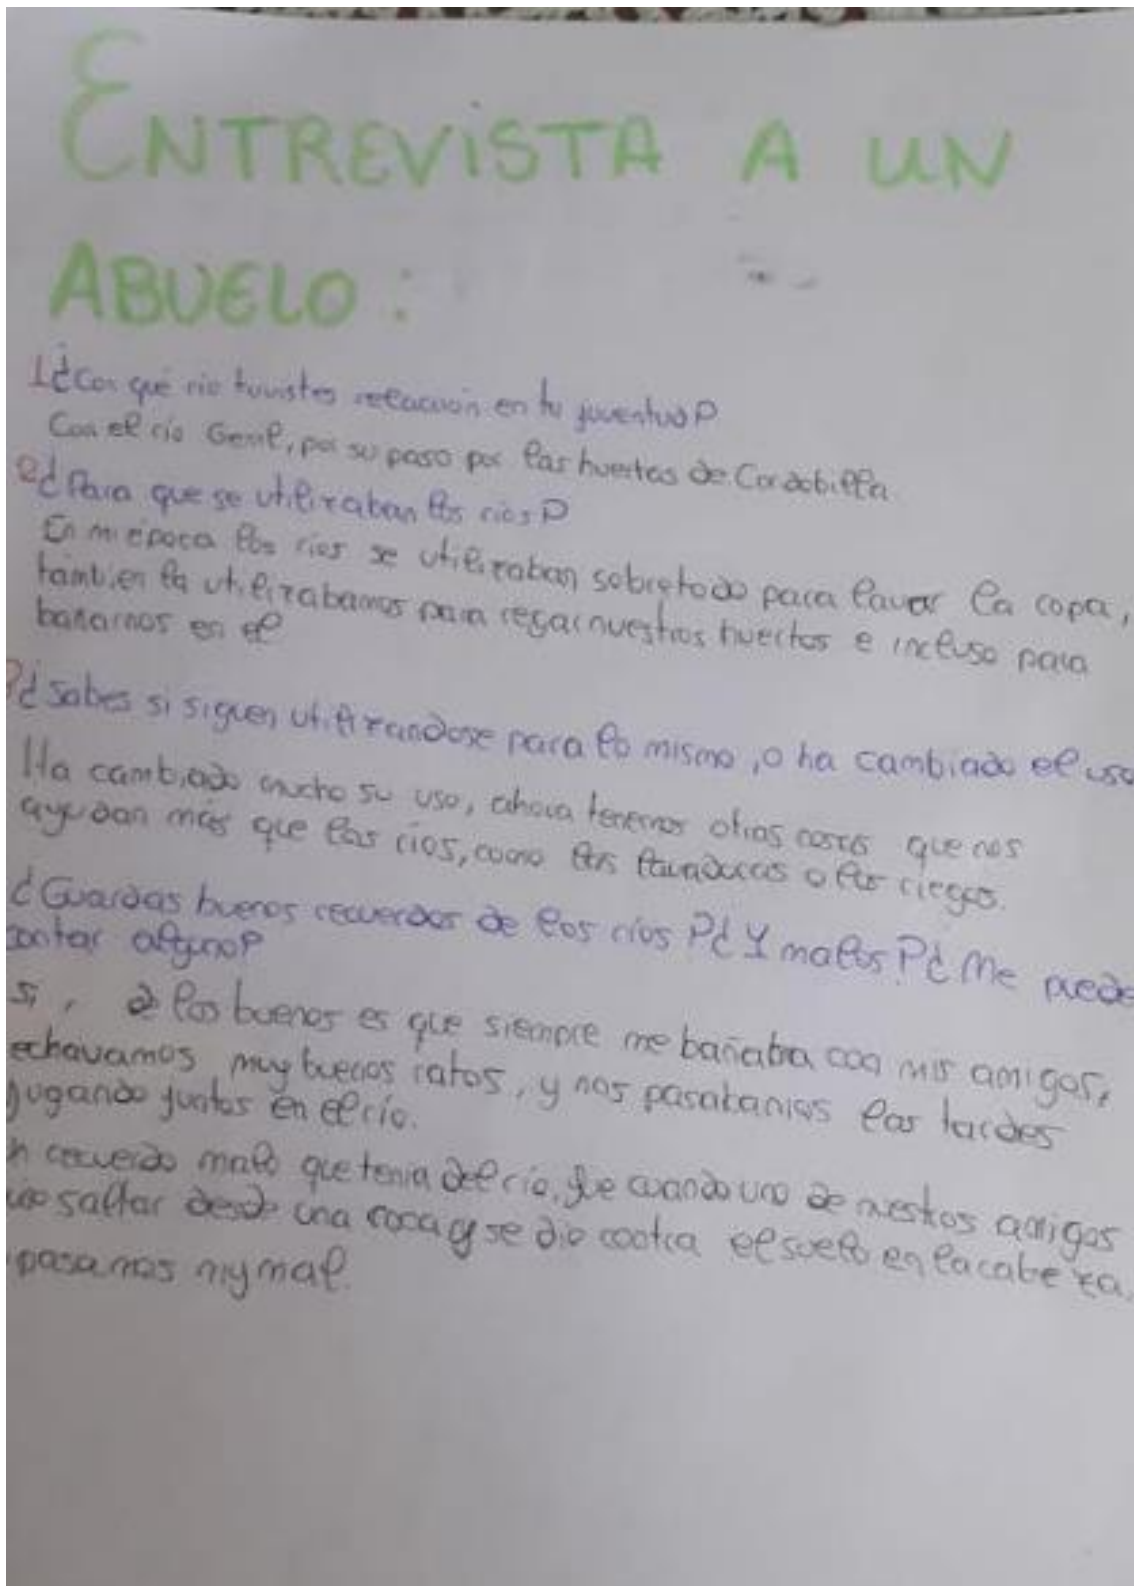 ENTREVISTA A UN
ABUELO:
1¿Con qué río tuvistes relación en tu juventud?
Con el río Genil, por su paso por las huertas de Cordobilla.
2¿Para que se utilizaban los ríos?
En mi época los ríos se utilizaban sobretodo para lavar la ropa,
tambien la utilizabamos para regar nuestros huertos e incluso para
bañarnos en el
¿Sabes si siguen utilizandose para lo mismo, o ha cambiado el uso
Ha cambiado mucho su uso, ahora tenemos otras cosas que nos
ayudan más que los ríos, como las lavadoras o los riegos.
¿Guardas buenos recuerdos de los ríos?¿Y malos?¿Me puede
contar alguno?
Si, de los buenos es que siempre me bañaba con mis amigos,
echavamos muy buenos ratos, y nos pasabamos las tardes
jugando juntos en el río.
n recuerdo malo que tenia del río, que cuando uno de nuestros amigos
uiso saltar desde una roca y se dio contra el suelo en la cabeza.
pasamos muy mal.